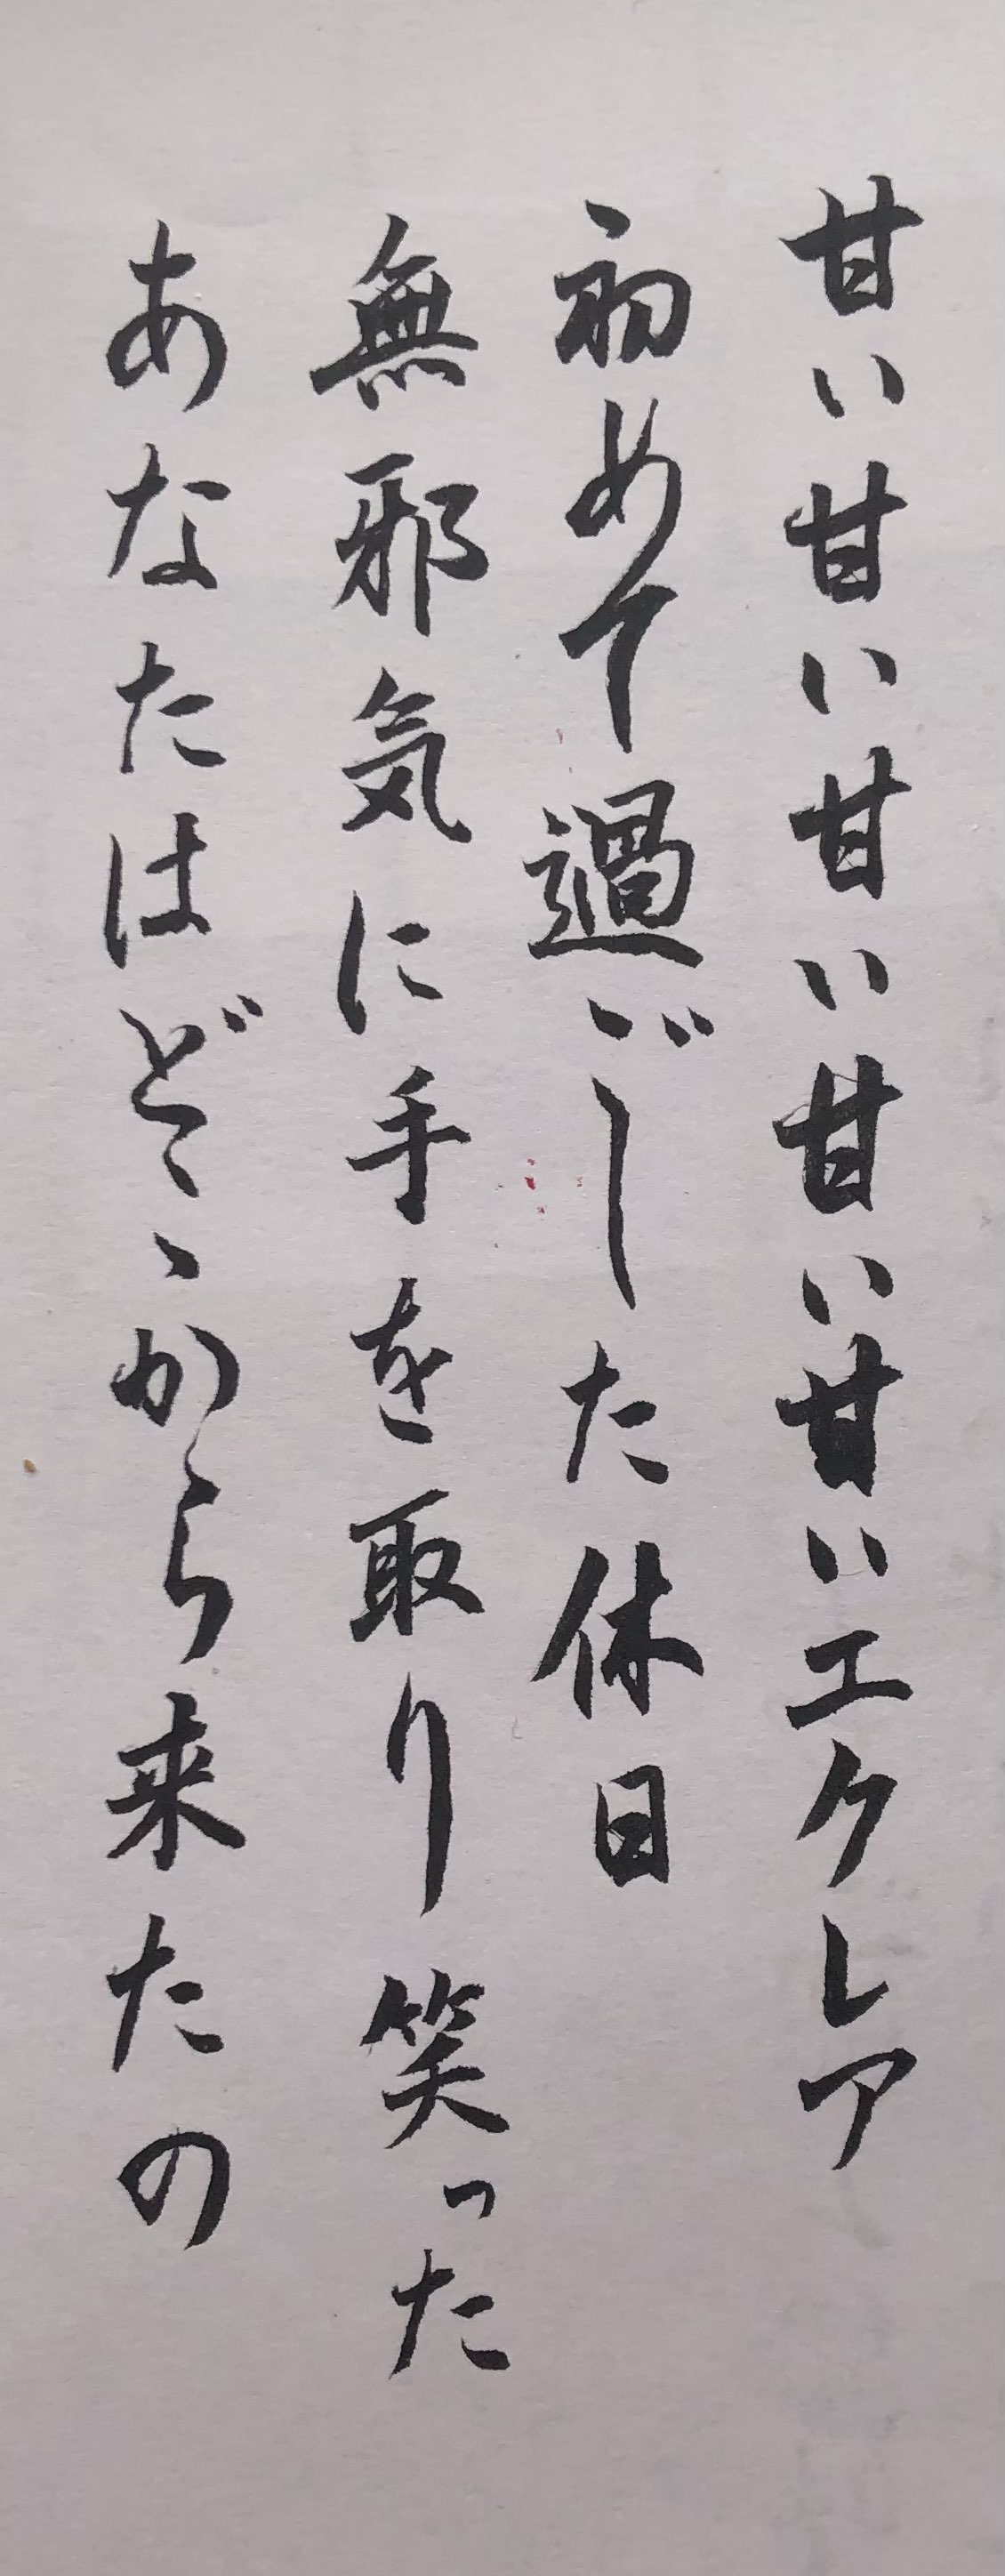 甘い甘い甘い甘い甘いエクレア
初めて過ごした休日
無邪気に手を取り笑った
あなたはどこから来たの